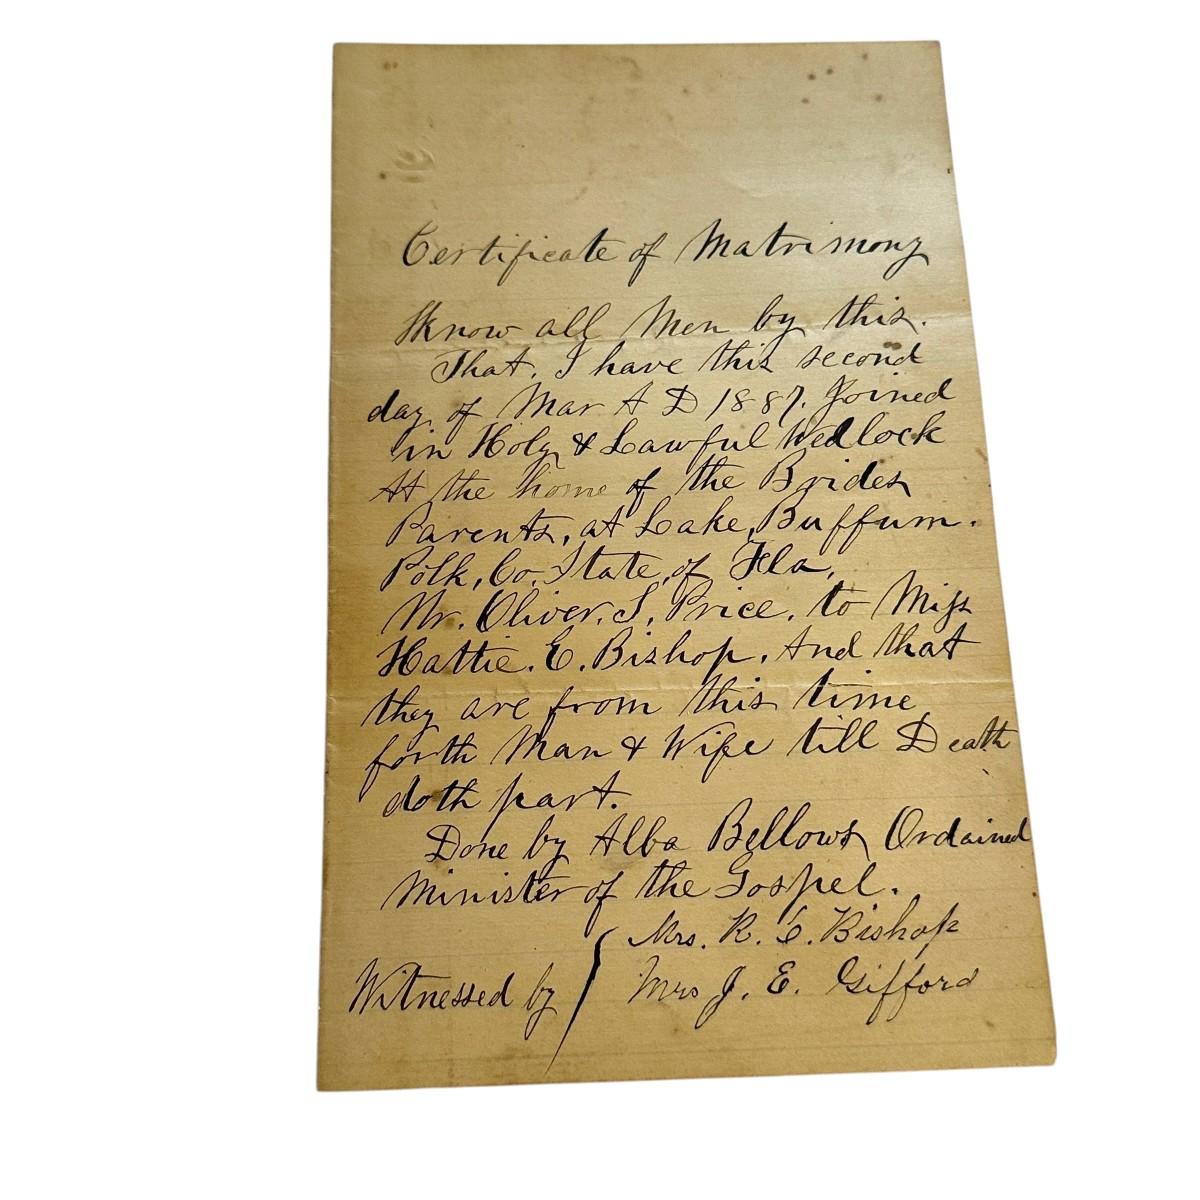 Certificate of Matrimony
Know all Men by this.
That. I have this second
day of Mar A D 1887. Joined
in Holy & Lawful Wedlock
At the home of the Brides
Parents, at Lake, Buffum.
Polk, Co. State, of Fla,
Mr. Oliver. S. Price. to Miss
Hattie. E. Bishop. And that
they are from this time
forth Man & Wife till Death
doth part.
Done by Alba Bellows Ordained
Minister of the Gospel.
Mrs. R. E. Bishop
Witnessed by
Mrs J. E. Gifford